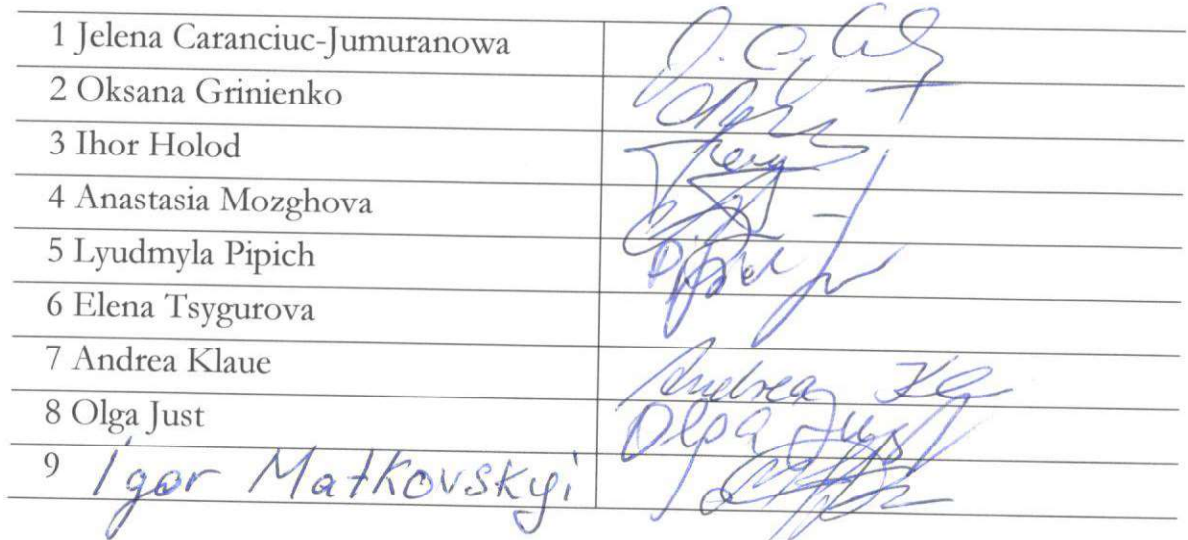 1 Jelena Caranciuc-Jumuranowa
2 Oksana Grinienko
3 Ihor Holod
4 Anastasia Mozghova
5 Lyudmyla Pipich
6 Elena Tsygurova
7 Andrea Klaue Andrea
8 Olga Just Olga Just
9 Igor Matkovskyi